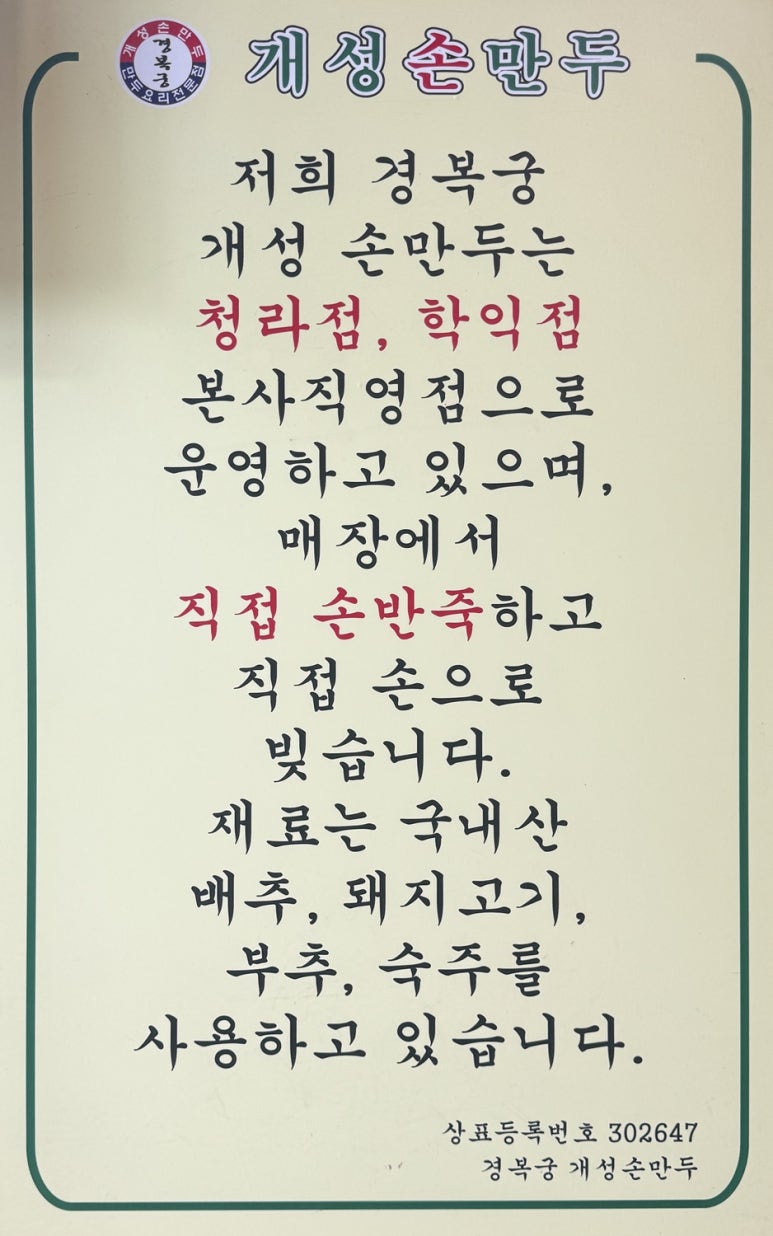 개성손만두
경복궁
만두요리전문점
개성손만두
저희 경복궁
개성 손만두는
청라점, 학익점
본사직영점으로
운영하고 있으며,
매장에서
직접 손반죽하고
직접 손으로
빚습니다.
재료는 국내산
배추, 돼지고기,
부추, 숙주를
사용하고 있습니다.
상표등록번호 302647
경복궁 개성손만두